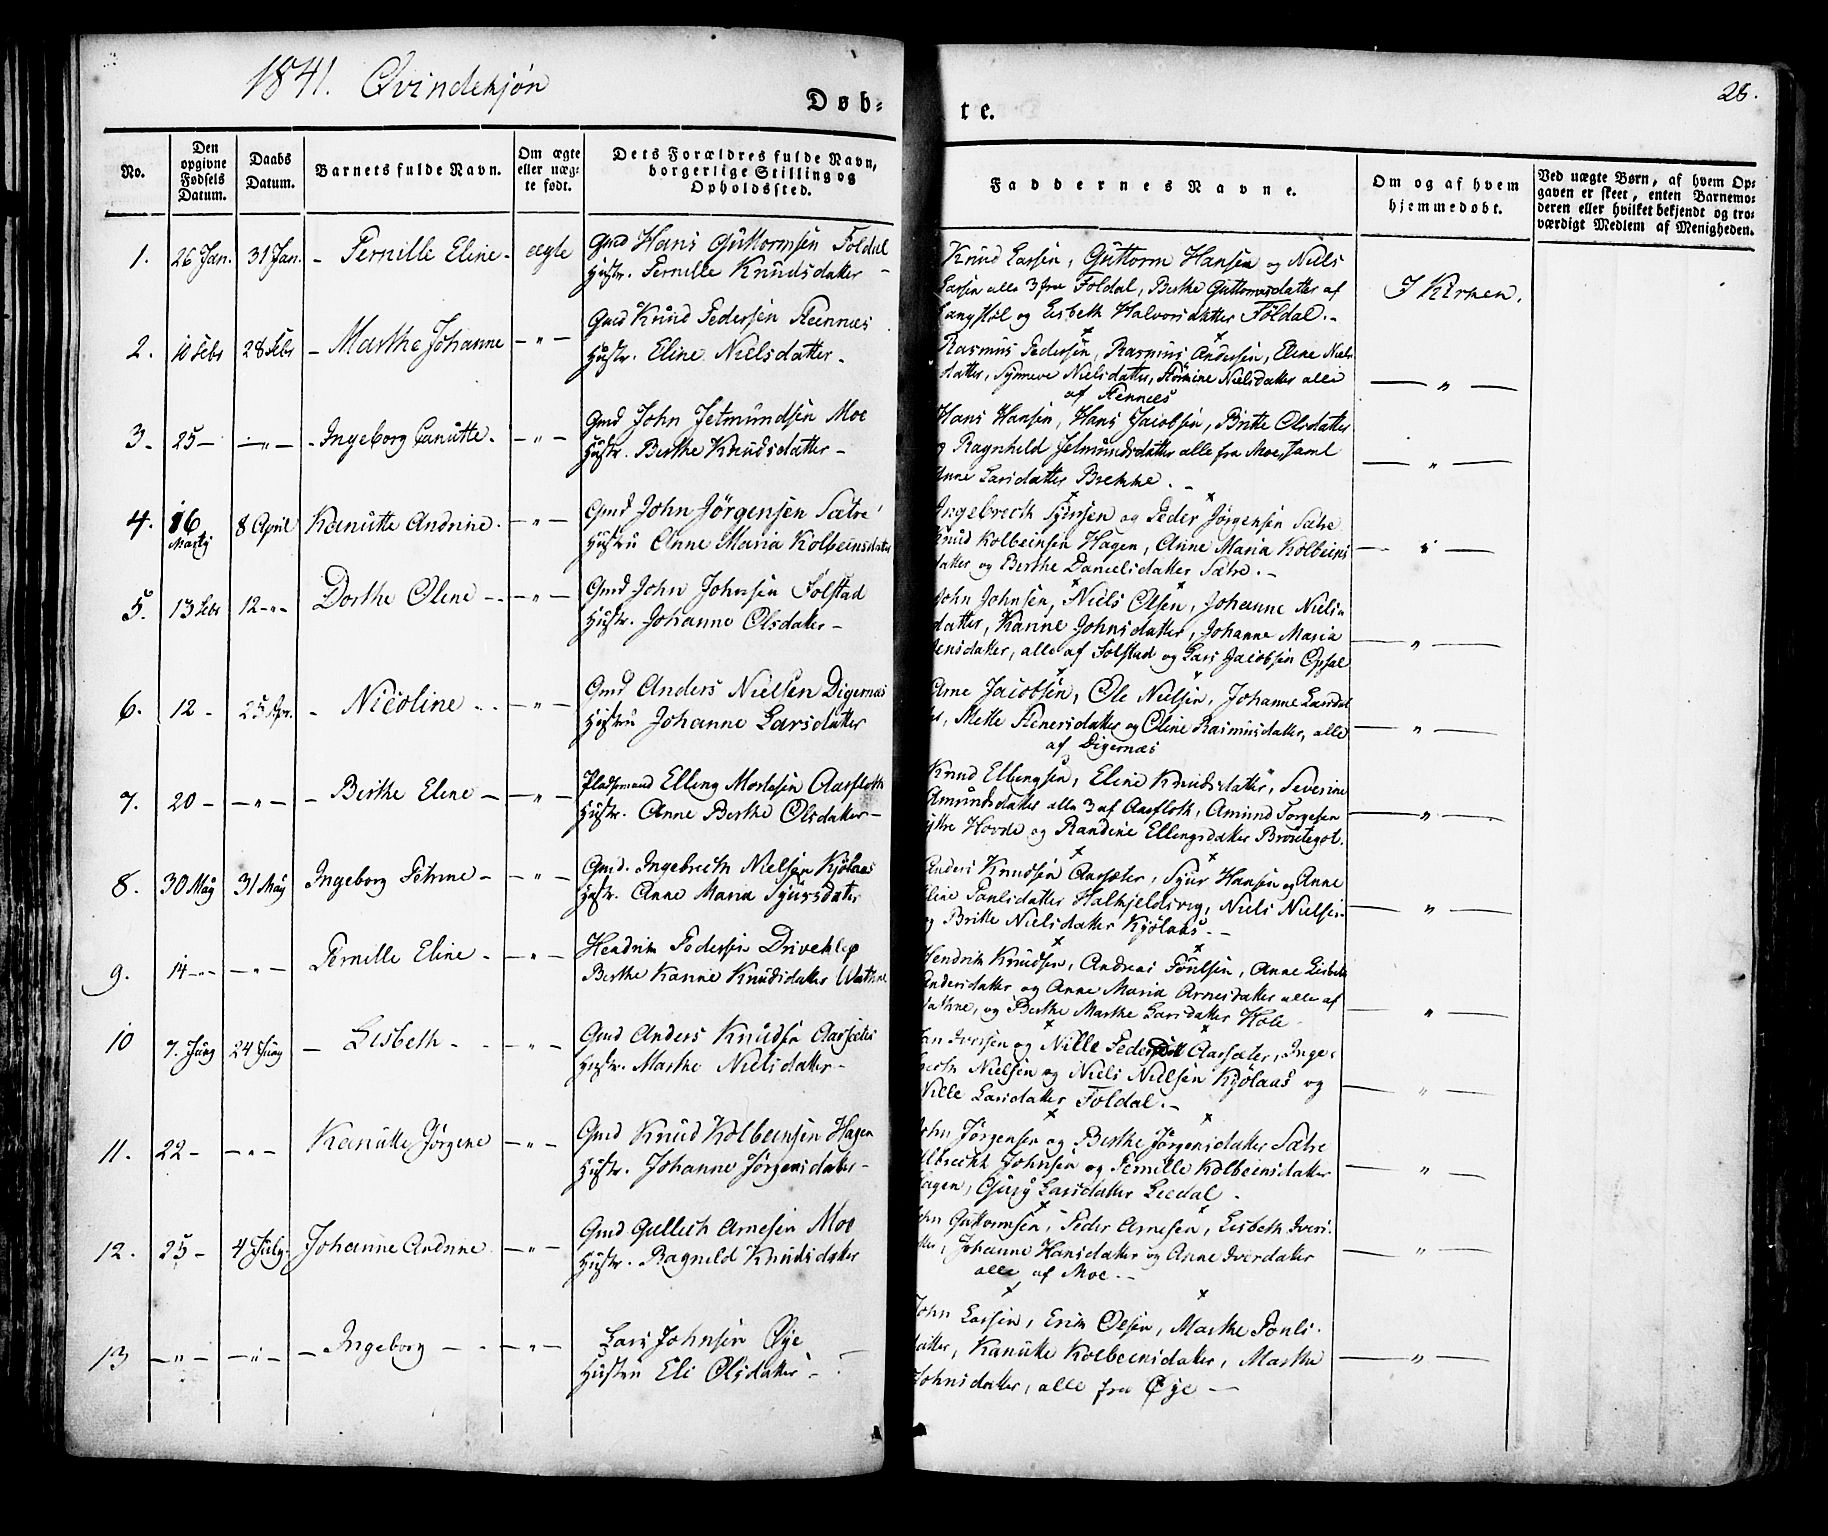 1841. Qvindekjøn
Døb-
te.
28.
No.
Den opgivne Fødsels Datum.
Daabs Datum.
Barnets fulde Navn.
Om ægte eller uægte født.
Dets Forældres fulde Navn, borgerlige Stilling og Opholdssted.
Faddernes Navne.
Om og af hvem hjemmedøbt.
Ved uægte Børn, af hvem Opgaven er skeet, enten Barnemoderen eller hvilket bekjendt og troværdigt Medlem af Menigheden.
1. 26 Jan. 31 Jan. - Pernille Eline - ægte
Gmd Hans Guttormsen Foldal
Hustr. Pernille Knudsdatter -
Knud Larsen, Guttorm Hansen og Niels
Larsen alle 3 fra Foldal, Berthe Guttormsdatter af
Langstøl og Lisbeth Halvorsdatter Foldal. -
I Kirken.
2. 10 Febr 28 Febr - Marthe Johanne - " -
Gmd Knud Pedersen Steennæs
Hustr. Eline Nielsdatter -
Rasmus Pedersen, Rasmus Andersen, Eline Niels
datter, Synneve Nielsdatter, Nielsdatter alle
af Stennæs
— " —
3 - 25 - - " - - Ingeborg Canutte - - " -
Gmd John Jetmundsen Moe
Hustr. Berthe Knudsdatter -
Hans Hansen, Hans Jacobsen, Britte Olsdatter
og Ragnhild Jetmundsdatter alle fra Moe, saml
Anne Larsdatter Brekke. -
— " —
4. 16 Martz 8 April Kanutte Andrine - - " -
Gmd John Jörgensen Sætre
Hustru Anne Maria Kolbeinsdatter
Ingebrecth Synsen og Peder Jörgensen Sætre
Knud Kolbeinsen Hagen, Anne Maria Kolbeins
datter og Berthe Danielsdatter Sætre. -
— " —
5. 13 Febr 12 - " - Dorthe Oline - - - " -
Gmd John Johnsen Solstad
Hustr. Johanne Olsdatter -
John Johnsen, Niels Olsen, Johanne Niels-
datter, Karine Johnsdatter, Johanne Maria
Jensdatter, alle af Solstad og Lars Jacobsen Opsal
— " —
6. 12 - 25 Apr. - Nicoline - - - " -
Gmd Anders Nielsen Digernæs
Hustru Johanne Larsdatter
Arne Jacobsen, Ole Nielsen, Johanne Larsdat
ter, Mette Stenersdatter og Oline Rasmusdatter, alle
af Digernæs
— " —
7. 20 - - " - - Berthe Eline - - " -
Pladsmand Elling Mortesen Aarfloth
Hustr. Anne Berthe Olsdatter -
Knud Ellingsen, Eline Knudsdatter, Severine
Amundsdatter alle 3 af Aarfloth, Amund Torgesen
Hovde og Randine Ellingsdatter Brautegot.
— " —
8. 30 May 31 May Ingeborg Petrine - - " -
Gmd. Ingebrecth Nielsen Kjölaas
Hustr. Anne Maria Syursdatter
Anders Knudsen Aarsæter, Syur Hansen og Anne
Eline Paulsdatter Halkjeldsvig, Niels Nielsen
og Britte Nielsdatter Kjölaas. -
— " —
9. 14 - " - - " - Pernille Eline - - " -
Hendrik Pedersen Driveklep
Berthe Kanne Knudsdatter Wathne
Hendrik Knudsen, Andreas Poulsen, Anne Lisbeth
Andersdatter og Anne Maria Arnesdatter alle af
Vathne, og Berthe Marthe Larsdatter Hole.
— " —
10 7. Juny 24 Juny - Lisbeth - - - " -
Gmd Anders Knudsen Aarsæter
Hustr. Marthe Nielsdatter -
Iversen og Nille Pedersdatt Aarsæter, Inge-
brecth Nielsen og Niels Nielsen Kjölaas og
Nille Larsdatter Foldal. -
— " —
11. 22 - - " - Kanutte Jörgine - " -
Gmd Knud Kolbeinsen Hagen
Hustr. Johanne Jörgensdatter -
John Jörgensen og Berthe Jörgensdatter Sætre
Johnsen og Pernille Kolbeinsdatter
Hagen, Gury Larsdatter Leedal.
— " —
12. 25 - 4 July. Johanne Andrine - " -
Gmd Gullich Arnesen Moe
Hustr. Ragnild Knudsdatter
John Guttormsen, Peder Arnesen, Lisbeth Ivers-
datter, Johanne Hansdatter og Anne Iversdatter
alle af Moe. -
— " —
13 - " - - " - - Ingeborg - - - " -
Lars Johnsen Øye
Hustru Eli Olsdatter -
John Larsen, Erik Olsen, Marthe Pouls-
datter, Kanutte Kolbeensdatter, Marthe
Johnsdatter, alle fra Øye -
— " —